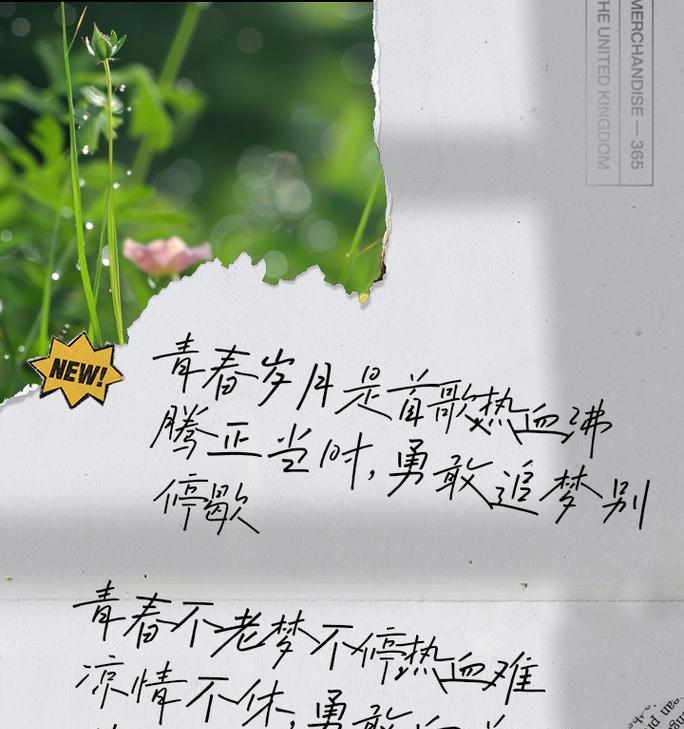 MERCHANDISE — 365
THE UNITED KINGDOM
NEW!
青春岁月是首歌热血沸
腾正当时,勇敢追梦别
停歇
青春不老梦不停热血难
凉情不休,勇敢